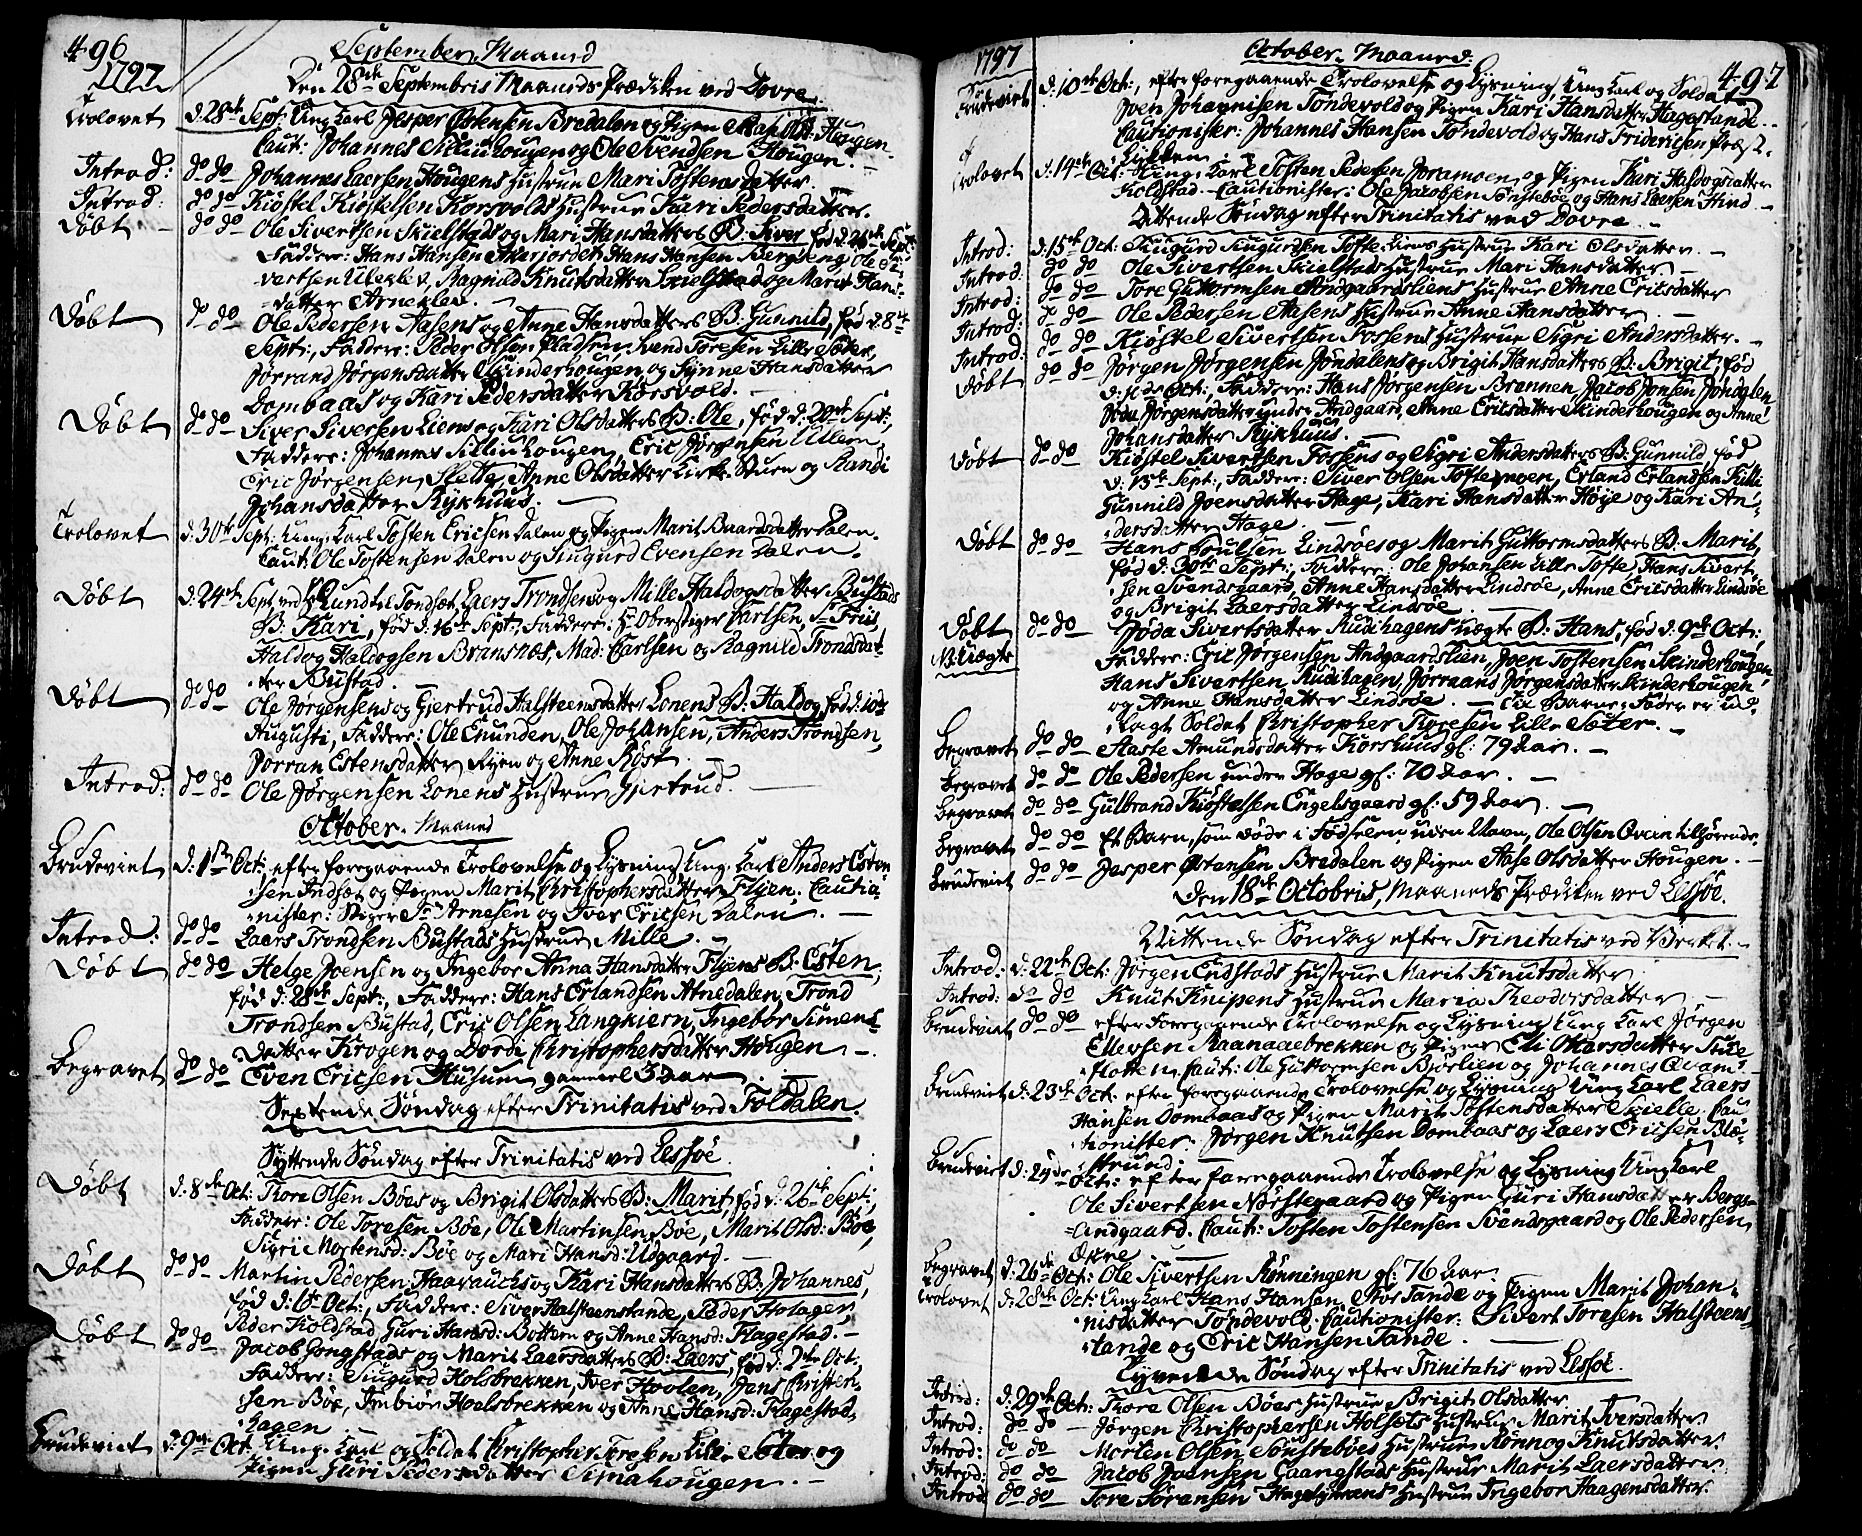 496
1797
September Maaned
Den 28de Septembris Maaneds Prædiken ved Dovre
Trolovet d: 28de Sept: Ung Karl Jesper Østensen Bredalen og Pigen Aase Ols: Hougen.
Caut: Johannes Silliuhougen og Ole Svendsen Hougen.
Introd: do do Johannes Laersen Hougens Hustrue Mari Tostensdatter.
Introd: do do Kiøstel Kiøstelsen Korsvolds Hustrue Kari Pedersdatter.
Døbt do do Ole Sivertsen Skielstads og Mari Hansdatters B: Siver født d: 26de Sept:
Faddere: Hans Hansen Akerjordet, Hans Hansen Bergseng, Ole Si-
vertsen Ulekleiv, Ragnild Knutsdatter Skielstad og Marit Hans-
datter Arneklev.
Døbt do do Ole Pedersen Aasens og Anne Hansdatters B: Gunnild, fød d: 8de
Sept:, Faddere: Peder Olsen Pladsen, Svend Toresen Lille Sæter,
Jørrand Jørgensdatter Skinderhougen og Synne Hansdatter
Dombaas og Kari Pedersdatter Korsvold.
Døbt do do Siver Siversen Liens og Kari Olsdatters B: Ole, fød d: 20de Sept:,
Faddere: Johannes Silliuhougen, Eric Jørgensen Ullern,
Eric Jørgensen Slette, Anne Olsdatter Kirke-Stuen og Randi
Johansdatter Rykhuus.
Trolovet d: 30te Sept: Ung Karl Tosten Ericsen Dalen og Pigen Marit Baardsdatter Dalen.
Caut: Ole Tostensen Dalen og Siugurd Evensen Dalen.
Døbt d: 24de Sept ved Lund til Tondset, Laers Trondsens og Mille Haldogsdatter Bustads
B: Kari, fød d: 16de Sept:, Faddere: Hr Oberstiger Karlsen, Sr Friis,
Haldog Haldogsen Bransnæs, Mad: Carlsen og Ragnild Trondsdat-
ter Bustad.
Døbt do do Ole Jørgensens og Gjertrud Halsteensdatter Lonens B: Haldog, fød d: 10de
Augusti, Faddere: Ole Enunden, Ole Johansen, Anders Trondsen,
Jorran Estensdatter Ryen og Anne Røst.
Introd: do do Ole Jørgensen Lonens Hustrue Gjertrud.
October Maaned
Brudeviet d: 1ste Oct: efter foregaaende Trolovelse og Lysning Ung Karl Anders Esten-
sen Indset og Pigen Marit Christophersdatter Flyen, Cautio-
nister: Stiger Sr Arnesen og Iver Ericsen Dalen.
Introd: do do Laers Trondsen Bustads Hustrue Mille.
Døbt do do Helge Joensen og Ingebor Anna Hansdatter Flyens B: Esten,
fød d: 28de Sept:, Faddere: Hans Erlandsen Atnedalen, Trond
Trondsen Bustad, Eric Olsen Langkiern, Ingebor Simens-
datter Krogen og Dordi Christophersdatter Hougen.
Begravet do do Even Ericsen Husum gammel 3 Aar.
Sextende Søndag efter Trinitatis ved Foldalen.
Syttende Søndag efter Trinitatis ved Lessøe.
Døbt d: 8de Oct: Tore Olsen Bøes og Brigit Olsdatters B: Marit, fød d: 26de Sept:,
Faddere: Ole Toresen Bøe, Ole Martinsen Bøe, Marit Olsd: Bøe,
Sigri Mortensd: Bøe og Mari Hansd: Udgaard.
Døbt do do Martin Pedersen Haaruuchs og Kari Hansdatters B: Johannes,
fød d: 6te Oct:, Faddere: Siver Halsteenstande, Peder Holagen,
Peder Koldstad, Guri Hansd: Bottem og Anne Hansd: Flagestad.
Døbt do do Jacob Gongstads og Marit Laersdatters B: Laers, fød d: 2den Oct:,
Faddere: Siugurd Holsbrekken, Iver Hoolen, Jens Christen-
sen Bøe, Imbiør Hoelsbrekken og Anne Hansd: Flagestad
hagen
Brudeviet d: 9de Oct: Ung Karl og Soldat Christopher Toresen Lille Sæter og
Pigen Guri Pedersdatter Simahougen.
1797
October Maaned.
497
Brudeviet d: 10de Oct:, efter foregaaende Trolovelse og Lysning Ung Karl og Soldat
Joen Johannisen Tøndevold og Pigen Kari Hansdatter Hagestande.
Cautionister: Johannes Hansen Tøndevold og Hans Fridericsen Præst-
løkken.
Trolovet d: 14de Oct: Ung Karl Tosten Pedersen Joramoen, og Pigen Kari Haldogsdatter
Koldstad. Cautionister: Ole Jacobsen Tønstebøe og Hans Laersen Hind.
Attende Søndag efter Trinitatis ved Dovre.
Introd: d: 15de Oct: Siugurd Siugurdsen Tofte-Liens Hustrue Kari Olsdatter.
Introd: do do Ole Sivertsen Skielstads Hustrue Mari Hansdatter
Introd: do do Tore Guttormsen Andgaardsliens Hustrue Anne Ericsdatter
Introd: do do Ole Pedersen Aasens Hustrue Anne Hansdatter.
Introd: do do Kiøstel Sivertsen Forsens Hustrue Sigri Andersdatter.
Døbt do do Jørgen Jørgensen Jøndalens og Brigit Hansdatters B: Brigit, fød
d: 11te Oct:, Faddere: Hans Jørgensen Brennen, Jacob Jonsen Jøndalen,
Jøda Jørgensdatter under Andgaard, Anne Ericsdatter Skinderhougen og Anne
Johansdatter Rykhuus.
Døbt do do Kiøstel Sivertsen Forsens og Sigri Andersdatters B: Gunnild fød
d: 13de Sept:, Faddere: Siver Olsen Toftemoen, Erland Erlandsen Killi
Gunnild Joensdatter Hage, Kari Hansdatter Høye og Kari An-
dersdatter Hage.
Døbt do do Hans Poulsen Lindsøes og Marit Guttormsdatters B: Marit,
fød d: 30te Sept:, Faddere: Ole Johansen Lille Tofte, Hans Sivert-
sen Svendsgaard, Anne Hansdatter Lindsøe, Anne Ericsdatter Lindsøe
og Brigit Laersdatter Lindsøe.
Døbt do do Jøda Sivertsdatter Rudihagens uægte B: Hans, fød d: 9de Oct:,
N: Uægte Faddere: Eric Jørgensen Andgaardslien, Joen Tostensen Skinderhougen,
Hans Sivertsen Rudihagen, Jørraans Jørgensdatter Skinderhougen
og Anne Hansdatter Lindsøe. Til Barne-Fader er ud-
lagt Soldat Christopher Thoresen Lille Sæter.
Begravet do do Aaste Amundsdatter Korshuus gl: 79 Aar.
Begravet do do Ole Pedersen under Hage gl: 70 Aar.
Begravet do do Gulbrand Kiøstelsen Engelsgaard gl: 59 Aar.
Begravet do do Et Barn, som døde i Fødselen uden Navn, Ole Olsen Qvam tilhørende
Brudeviet do do Jesper Østensen Bredalen og Pigen Aase Olsdatter Hougen.
Den 18de Octobris, Maaneds Prædiken ved Lessøe.
Nittende Søndag efter Trinitatis ved Verket.
Introd: d: 22de Oct: Jørgen Endstads Hustrue Marit Knutsdatter
Introd: do do Knut Knipens Hustrue Maria Theodorsdatter
Brudeviet do do efter Foregaaende Trolovelse og Lysning Ung Karl Jørgen
Ellevsen Raanaaebrekken og Pigen Eli Otharsdatter Stue-
flotten, Caut: Ole Guttormsen Bjørlien og Johannes Qvam.
Brudeviet d: 23de Oct: efter foregaaende Trolovelse og Lysning Ung Karl Laers
Hansen Dombaas og Pigen Marit Tostensdatter Skielle. Cau-
tionister: Jørgen Knutsen Dombaas og Laers Ericsen Blæ-
strund.
Brudeviet d: 25de Oct: efter foregaaende Trolovelse og Lysning Ung Karl
Ole Sivertsen Norstegaard og Pigen Guri Hansdatter Bergs-
andgaard. Caut: Tosten Tostensen Svendsgaard og Ole Pedersen
Øvre.
Begravet d: 26de Oct: Ole Sivertsen Rønningen gl: 76 Aar.
Trolovet d: 28de Oct: Ung Karl Hans Hansen Nor Tande og Pigen Marit Johan-
nisdatter Tøndevold. Cautionister: Sivert Toresen Halsteens-
tande og Eric Hansen Tande.
Tyvende Søndag efter Trinitatis ved Lessøe.
Introd: d: 29de Oct: Tore Olsen Bøes Hustrue Brigit Olsdatter
Introd: do do Jørgen Christophersen Holsets Hustrue Marit Iversdatter
Introd: do do Morten Olsen Tønstebøes Hustrue Rønnog Knutsdatter.
Introd: do do Jacob Joensen Gaangstads Hustrue Marit Laersdatter
Introd: do do Tore Sørensen Hagetrøens Hustrue Ingebor Haagensdatter.